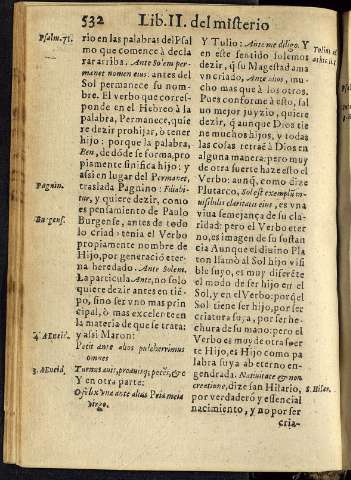 532 Lib. II. del misterio
Psalm. 71.
rio en las palabras del Psal
mo que comence à decla
rar arriba. Ante Solem per
manet nomen eius: antes del
Sol permanece su nom-
bre. El verbo que corres-
ponde en el Hebreo à la
palabra, Permanece, quie
re dezir prohijar, ò tener
hijo: porque la palabra,
Ben, de dõde se forma, pro
piamente sinifica hijo: y
assi en lugar del Permanet,
Pagnin.
traslada Pagnino: Filiabi-
tur, y quiere dezir, como
Burgens.
es pensamiento de Paulo
Burgense, antes de todo
lo criado, tenia el Verbo
propiamente nombre de
Hijo, por generació eter-
na heredado. Ante Solem.
La particula, Ante, no solo
quiere dezir antes en tié-
po, sino ser vno mas prin
cipal, ò mas excelente en
la materia de que se trata:
4. AEneid.
y assi Maron:
Petit ante alios pulcherrimus
omnes
3. AEneid.
Turnus auis,
Y en otra parte:
virgo.
Y Tulio: Ante me diligo. Y
en este sentido solemos
dezir, q̃ su Magestad ama
vn criado, Ante alios, mu-
cho mas que à los otros.
Pues conforme à esto, sal
uo mejor juyzio, quiere
dezir, q̃ aunque Dios tie
ne muchos hijos, y todas
las cosas retraé à Dios en
alguna manera: pero muy
de otra suerte haze esto el
Verbo: aunq̃, como dize
Plutarco, Sol est exemplũ in-
uisibilis claritatis eius, es vna
viua semejança de su cla-
ridad: pero el Verbo eter
no, es imagen de su sustan
cia. Aunque el diuino Pla
ton llamò al Sol hijo visi
ble suyo, es muy diferéte
el modo de ser hijo en el
Sol, y en el Verbo: porq̃ el
Sol tiene ser hijo, por ser
criatura suya, por ser he-
chura de su mano: pero el
Verbo es muy de otra suer
te Hijo, es Hijo como pa
labra suya ab eterno en-
gendrada. Natiuitate & non
creatione, dize san Hilario,
S. Hilar.
por verdadero y essencial
nacimiento, y no por ser
cria-